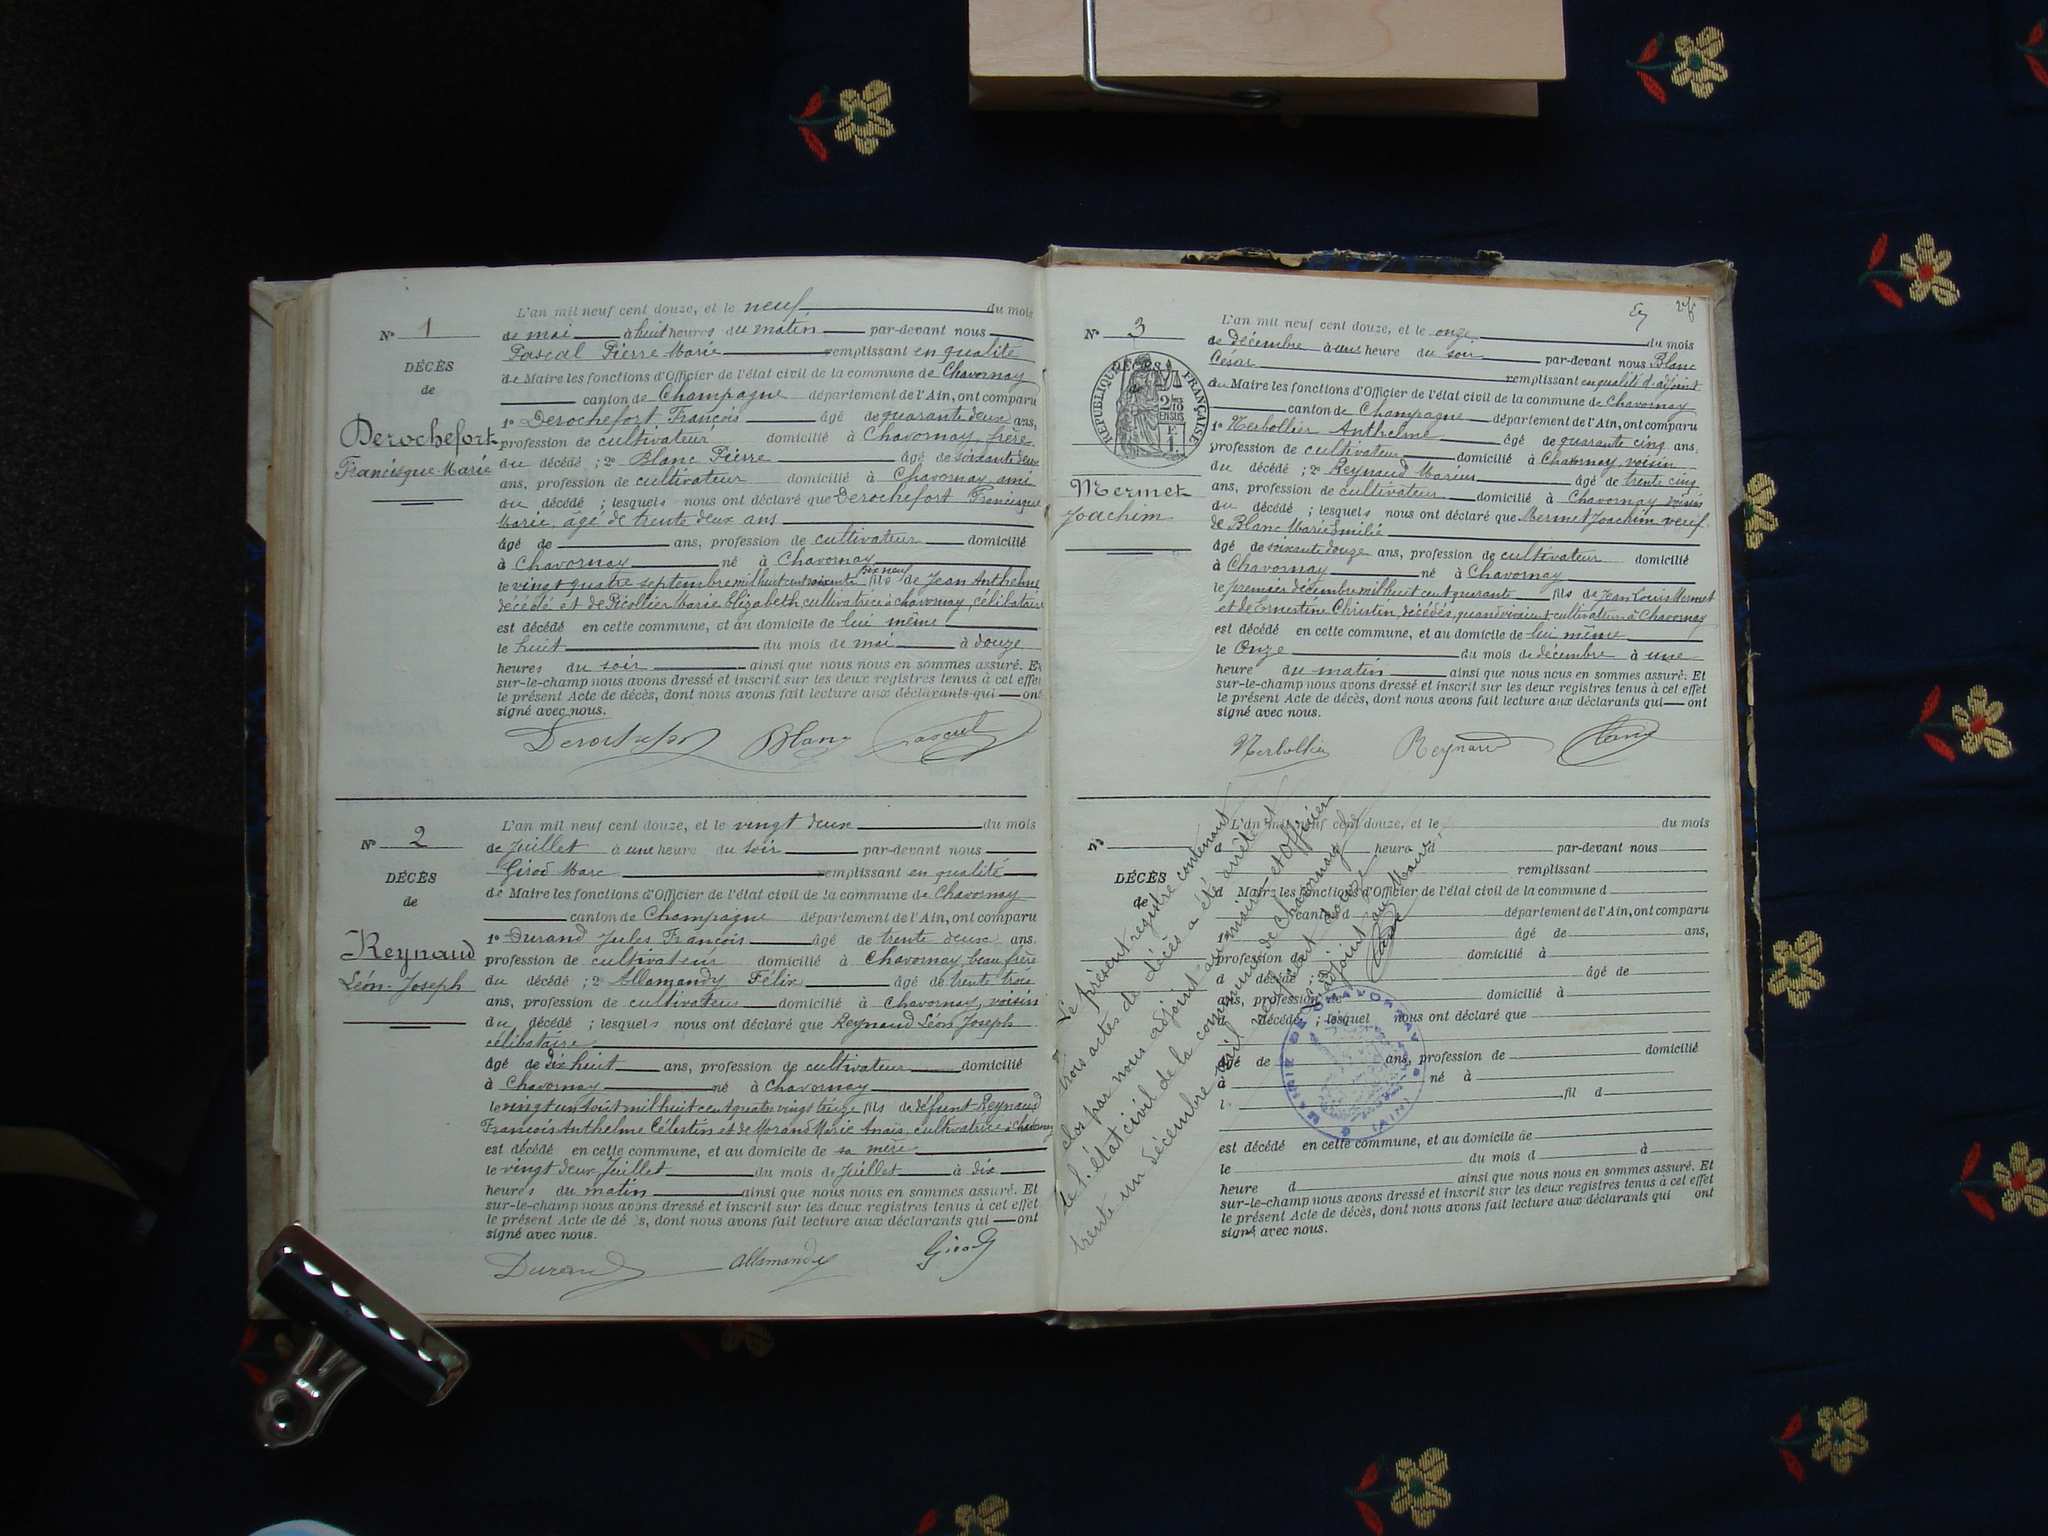 N° 1
DÉCÈS
de
Derochefort
Francisque Marie
L'an mil neuf cent douze, et le neuf du mois
de mai à huit heures du matin par-devant nous
Pascal Pierre Marie remplissant en qualité
de Maire les fonctions d'Officier de l'état civil de la commune de Chavornay
canton de Champagne département de l'Ain, ont comparu
1° Derochefort François âgé de quarante deux ans,
profession de cultivateur domicilié à Chavornay, frère
du décédé ; 2° Blanc Pierre âgé de soixante deux
ans, profession de cultivateur domicilié à Chavornay, ami
du décédé ; lesquels nous ont déclaré que Derochefort Francisque
Marie, âgé de trente deux ans
âgé de ans, profession de cultivateur domicilié
à Chavornay né à Chavornay
le vingt quatre septembre mil huit cent soixante dix neuf fils de Jean Anthelme
décédé et de Récollier Marie Elizabeth, cultivatrice à Chavornay, célibataire
est décédé en cette commune, et au domicile de lui même
le huit du mois de mai à douze
heures du soir ainsi que nous nous en sommes assuré. Et
sur-le-champ nous avons dressé et inscrit sur les deux registres tenus à cet effet
le présent Acte de décès, dont nous avons fait lecture aux déclarants qui ont
signé avec nous.
Blanc Pascal
N° 2
DÉCÈS
de
Reynaud
Léon-Joseph
L'an mil neuf cent douze, et le vingt deux du mois
de Juillet à une heure du soir par-devant nous
Girod Marc remplissant en qualité
de Maire les fonctions d'Officier de l'état civil de la commune de Chavornay
canton de Champagne département de l'Ain, ont comparu
1° Durand Jules François âgé de trente deux ans,
profession de cultivateur domicilié à Chavornay, beau frère
du décédé ; 2° Allamandy Félix âgé de trente trois
ans, profession de cultivateur domicilié à Chavornay, voisin
du décédé ; lesquels nous ont déclaré que Reynaud Léon Joseph
célibataire
âgé de dix huit ans, profession de cultivateur domicilié
à Chavornay né à Chavornay
le vingt un août mil huit cent quatre vingt treize fils de défunt Reynaud
François Anthelme Célestin et de Morand Marie Anaïs, cultivatrice à Chavornay
est décédé en cette commune, et au domicile de sa mère
le vingt deux Juillet du mois de Juillet à dix
heures du matin ainsi que nous nous en sommes assuré. Et
sur-le-champ nous avons dressé et inscrit sur les deux registres tenus à cet effet
le présent Acte de décès, dont nous avons fait lecture aux déclarants qui ont
signé avec nous.
Durand Allamandy Girod
N° 3
DÉCÈS
de
RÉPUBLIQUE FRANÇAISE
Mermet
Joachim
L'an mil neuf cent douze, et le onze du mois
de Décembre à une heure du soir par-devant nous Blanc
César remplissant en qualité d'adjoint
au Maire les fonctions d'Officier de l'état civil de la commune de Chavornay
canton de Champagne département de l'Ain, ont comparu
1° Nerbollier Anthelme âgé de quarante cinq ans,
profession de cultivateur domicilié à Chavornay, voisin
du décédé ; 2° Reynaud Marius âgé de trente cinq
ans, profession de cultivateur domicilié à Chavornay, voisin
du décédé ; lesquels nous ont déclaré que Mermet Joachim veuf
de Blanc Marie Emilie
âgé de soixante douze ans, profession de cultivateur domicilié
à Chavornay né à Chavornay
le premier décembre mil huit cent quarante fils de Jean Louis Mermet
et de Ernestine Christin, décédés, quand vivaient cultivateurs à Chavornay
est décédé en cette commune, et au domicile de lui même
le Onze du mois de décembre à une
heure du matin ainsi que nous nous en sommes assuré. Et
sur-le-champ nous avons dressé et inscrit sur les deux registres tenus à cet effet
le présent Acte de décès, dont nous avons fait lecture aux déclarants qui ont
signé avec nous.
Nerbollier Reynaud Blanc
N°
DÉCÈS
de
L'an mil neuf cent douze, et le du mois
d heure d par-devant nous
remplissant
d Maire les fonctions d'Officier de l'état civil de la commune d
canton d département de l'Ain, ont comparu
âgé de ans,
profession de domicilié à
d décédé ; 2° âgé de
ans, profession de domicilié à
d décédé ; lesquel nous ont déclaré que
âgé de ans, profession de domicilié
à né à
l fil d
est décédé en cette commune, et au domicile de
le du mois d à
heure d ainsi que nous nous en sommes assuré. Et
sur-le-champ nous avons dressé et inscrit sur les deux registres tenus à cet effet
le présent Acte de décès, dont nous avons fait lecture aux déclarants qui ont
signé avec nous.
Le présent registre contenant
trois actes de décès a été arrêté et
clos par nous adjoint au maire et Officier
de l'état civil de la commune de Chavornay le
trente un décembre mil neuf cent douze
L'adjoint au Maire,
Blanc
MAIRIE DE CHAVORNAY (AIN)